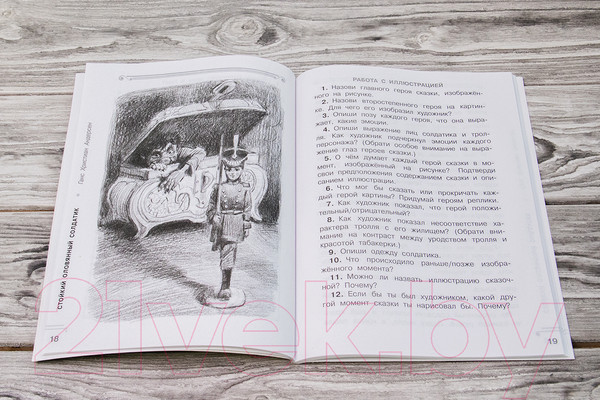 СТОЙКИЙ ОЛОВЯННЫЙ СОЛДАТИК
Ганс Христиан Андерсен
18
РАБОТА С ИЛЛЮСТРАЦИЕЙ
1. Назови главного героя сказки, изображён-
ного на рисунке.
2. Назови второстепенного героя на картин-
ке. Для чего его изобразил художник?
3. Опиши позу каждого героя, что она выра-
жает, какие эмоции.
4. Опиши выражение лиц солдатика и тролля-
персонажа? (Обрати особое внимание на выра-
жение глаз героев сказки.)
5. О чём думает каждый герой сказки в мо-
мент, изображённый на рисунке? Подтверди
свои предположения содержанием сказки и опи-
санием иллюстрации.
6. Что мог бы сказать или прокричать каж-
дый герой картины? Придумай героям реплики.
7. Как художник показал, что герой положи-
тельный/отрицательный?
8. Как художник показал несоответствие ха-
рактера тролля с его жилищем? (Обрати вни-
мание на контраст между уродством тролля и
красотой табакерки.)
9. Опиши одежду солдатика.
10. Что происходило раньше/позже изобра-
жённого момента?
11. Можно ли назвать иллюстрацию сказоч-
ной? Почему?
12. Если бы ты был художником, какой дру-
гой момент сказки ты нарисовал бы. Почему?
19
21vek.by